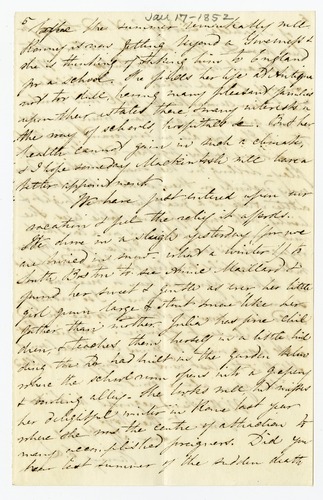 Jan 17-1852
5
the summer remarkably well
Ronny is now getting beyond a Governess &
she is thinking of taking him to England
for a school. She finds her life at Antigua
not too dull, having many pleasant families
upon their estates there, many interests in
the way of schools, hospitals &c. But her
health cannot gain in such a climate,
& I hope someday Mackintosh will have a
better appointment.
We have just entered upon our
vacation & feel the relief it affords.
We drove in a sleigh yesterday (for we
are buried in snow - what a winter!) to
South Boston to see Annie Maillard &
found her sweet & gentle as ever her little
girl grown large & stout more like her
father than mother. Julia has five chil
dren, & teaches them herself in a little
thing the Dr had built in the garden
where the school room opens into a grapery
& bowling alley. She looks well but misses
her delightful winter in Rome last year
where she was the centre of attraction to
many accomplished foreigners. Did you
hear last summer of the sudden death